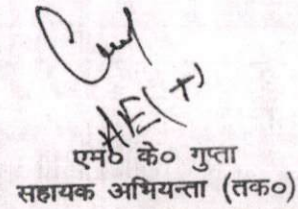 AE(T)
एम० के० गुप्ता
सहायक अभियन्ता (तक०)